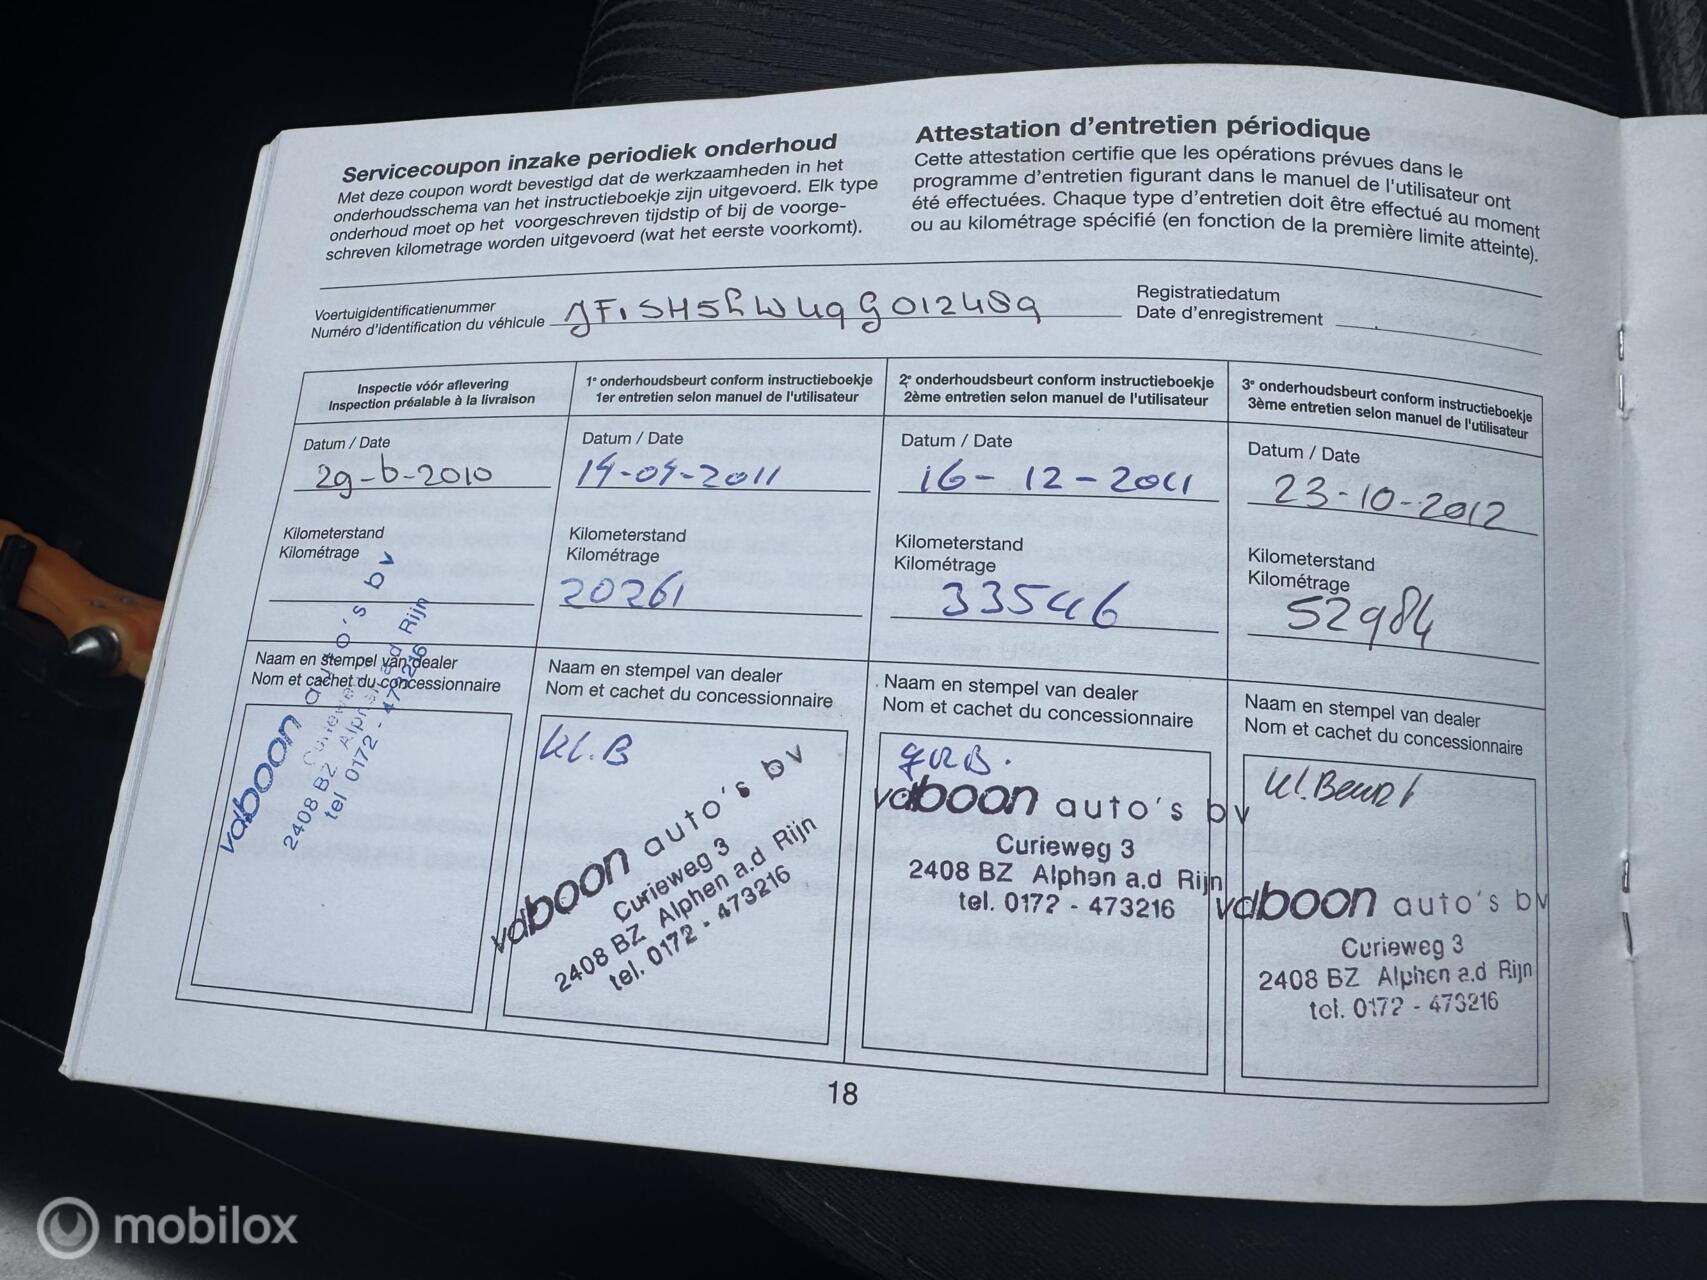 Servicecoupon inzake periodiek onderhoud
Met deze coupon wordt bevestigd dat de werkzaamheden in het
onderhoudsschema van het instructieboekje zijn uitgevoerd. Elk type
onderhoud moet op het voorgeschreven tijdstip of bij de voorge-
schreven kilometrage worden uitgevoerd (wat het eerste voorkomt).
Attestation d'entretien périodique
Cette attestation certifie que les opérations prévues dans le
programme d'entretien figurant dans le manuel de l'utilisateur ont
été effectuées. Chaque type d'entretien doit être effectué au moment
ou au kilométrage spécifié (en fonction de la première limite atteinte).
Voertuigidentificatienummer
Numéro d'identification du véhicule
Registratiedatum
Date d'enregistrement
Inspectie vóór aflevering
Inspection préalable à la livraison
Datum / Date
29-6-2010
Kilometerstand
Kilométrage
Naam en stempel van dealer
Nom et cachet du concessionnaire
vdboon auto's bv
Curieweg
2408 BZ Alphen a.d Rijn
tel 0172 - 473216
1e onderhoudsbeurt conform instructieboekje
1er entretien selon manuel de l'utilisateur
Datum / Date
14-04-2011
Kilometerstand
Kilométrage
20261
Naam en stempel van dealer
Nom et cachet du concessionnaire
kl.B
vdboon auto's bv
Curieweg 3
2408 BZ Alphen a.d Rijn
tel. 0172 - 473216
2e onderhoudsbeurt conform instructieboekje
2ème entretien selon manuel de l'utilisateur
Datum / Date
16-12-2011
Kilometerstand
Kilométrage
33546
Naam en stempel van dealer
Nom et cachet du concessionnaire
vdboon auto's bv
Curieweg 3
2408 BZ Alphen a.d Rijn
tel. 0172 - 473216
3e onderhoudsbeurt conform instructieboekje
3ème entretien selon manuel de l'utilisateur
Datum / Date
23-10-2012
Kilometerstand
Kilométrage
52984
Naam en stempel van dealer
Nom et cachet du concessionnaire
kl.Beurt
vdboon auto's bv
Curieweg 3
2408 BZ Alphen a.d Rijn
tel. 0172 - 473216
18
mobilox